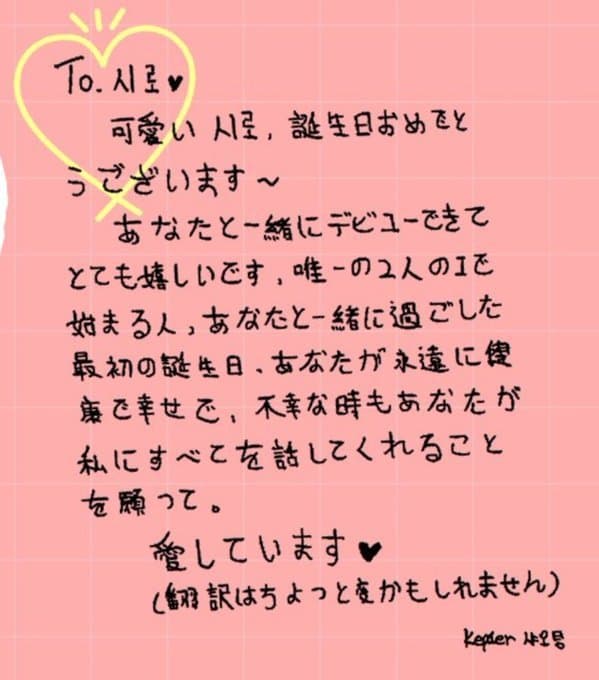 To. 시로♥
可愛い 시로, 誕生日おめでと
うございます～
あなたと一緒にデビューできて
とても嬉しいです, 唯一の2人のIで
始まる人, あなたと一緒に過ごした
最初の誕生日、あなたが永遠に健
康で幸せで, 不幸な時もあなたが
私にすべてを話してくれること
を願って。
愛しています♥
(翻訳はちょっと変かもしれません)
Kep1er